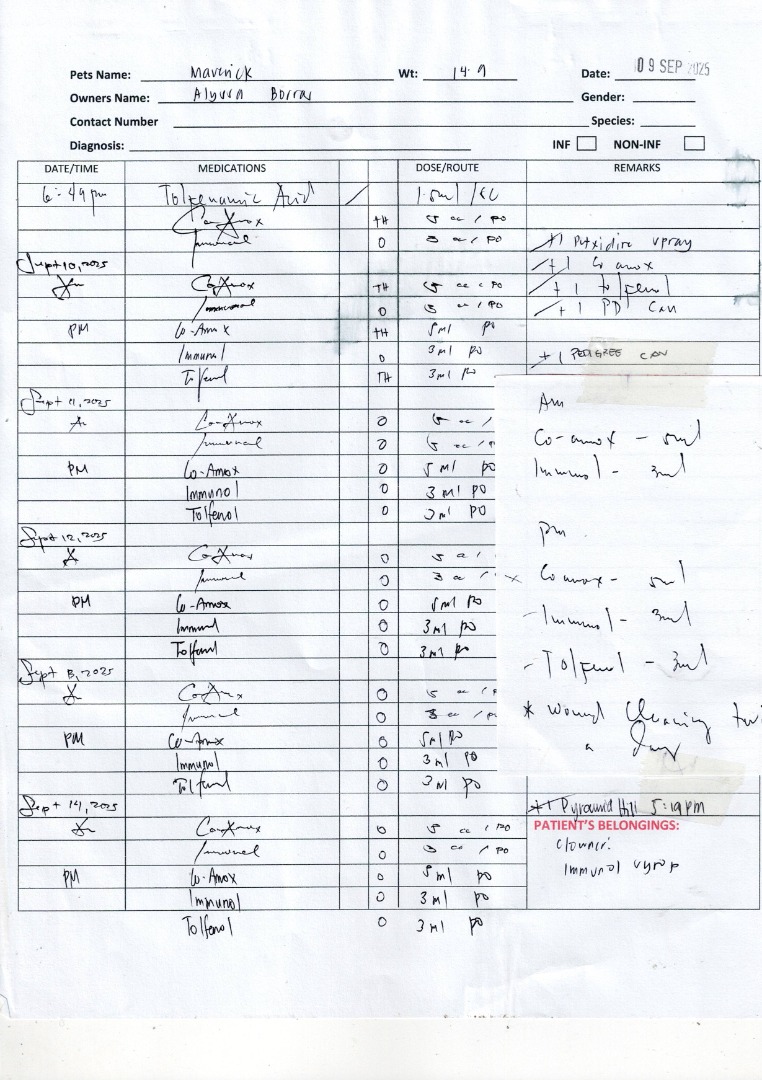 Pets Name: Maverick Wt: 14.9 Date: 09 SEP 2025
Owners Name: Alyssa Borras Gender:
Contact Number Species:
Diagnosis: INF NON-INF
DATE/TIME MEDICATIONS DOSE/ROUTE REMARKS
6:49 pm Tolfenamic Acid / 1.5ml / SC
Co-Amox TH 5 cc / PO
Immunol O 3 cc / PO +1 spray
Sept 10, 2025 +1 Co amox
Co-Amox TH 5 cc / PO +1 tolfenol
Immunol O 3 cc / PO +1 PD CAN
PM Co-Amox TH 5ml po
Immunol O 3ml po +1 PEDIGREE CAN
Tolfenol TH 3ml po
Sept 11, 2025
Co-Amox O 5 cc /
Immunol O cc / P
PM Co-Amox O 5 ml PO
Immunol O 3 ml PO
Tolfenol O 3ml PO
Sept 12, 2025
Co-Amox O 5 cc /
Immunol O 3 cc /
PM Co-Amox O 5ml PO
Immunol O 3ml po
Tolfenol O 3ml po
Sept 13, 2025
Co-Amox O 5 cc / P
Immunol O 3 cc / P
PM Co-Amox O 5ml PO
Immunol O 3ml PO
Tolfenol O 3ml po
Am
Co-amox - 5ml
Immunol - 3ml
pm
Coamox - 5ml
- Immunol - 3ml
- Tolfenol - 3ml
* Wound Cleaning
a day
Sept 14, 2025 +1 Pyramid Hill 5:19pm
Co-Amox O 5 cc / PO PATIENT'S BELONGINGS:
Immunol O 3 cc / PO
PM Co-Amox O 5ml po Immunol syrup
Immunol O 3ml po
Tolfenol O 3ml po